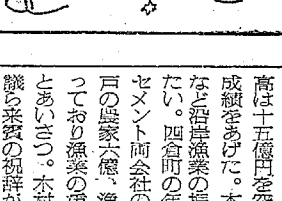 高は十五億円を突
成績をあげた。本
など沿岸漁業の振
たい。四倉町の年
セメント両会社の
戸の農家六億、漁
っており漁業の重
とあいさつ。木村
議ら来賓の祝辞が